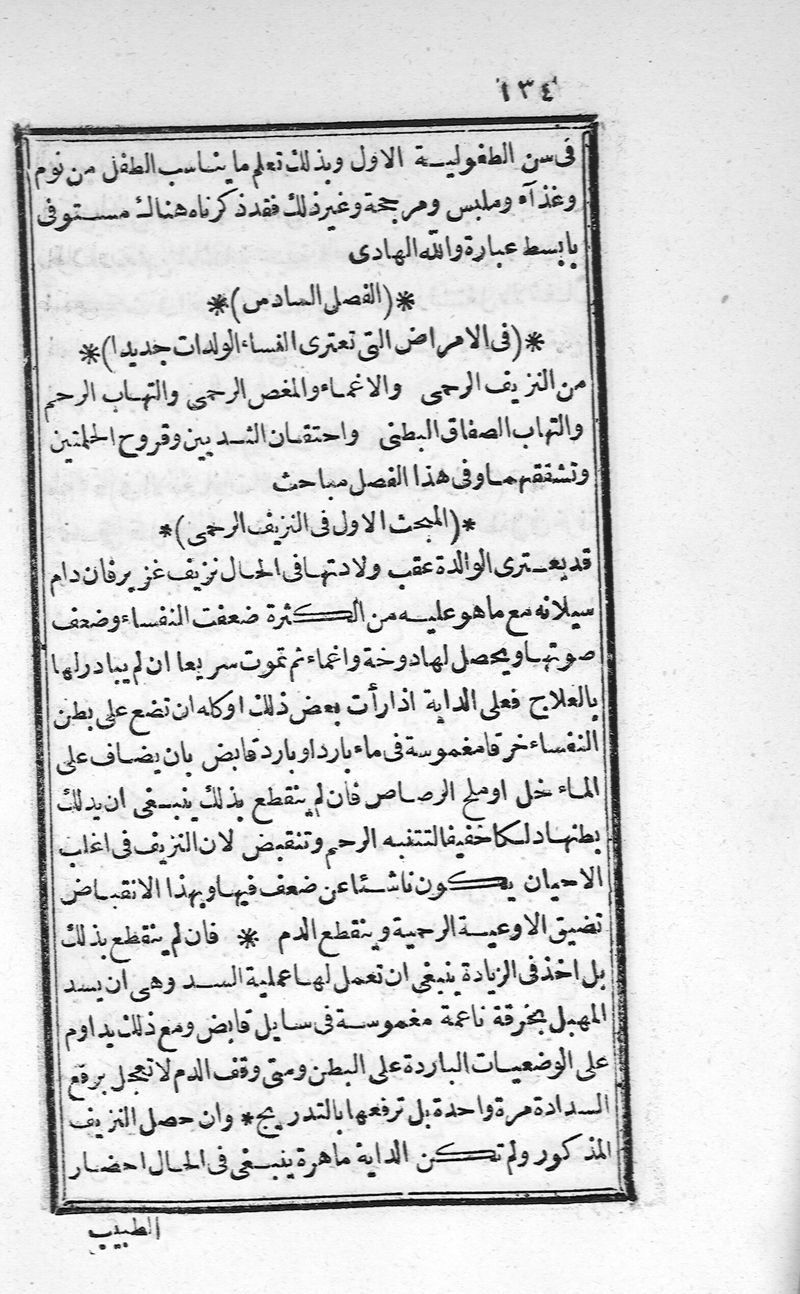 ١٣٤
فى سن الطفولية الاول وبذلك تعلم ما يناسب الطفل من نوم
وغذآء وملبس ومرجحة وغير ذلك فقد ذكرناه هناك مستوفى
بابسط عبارة والله الهادى
*(الفصل السادس)*
*(فى الامراض التى تعترى النفساء الولدات جديدا)*
من النزيف الرحمى والاغماء والمغص الرحمى والتهاب الرحم
والتهاب الصفاق البطنى واحتقان الثديين وقروح الحلمتين
وتشققهما وفى هذا الفصل مباحث
*(المبحث الاول فى النزيف الرحمى)*
قد يعترى الوالدة عقب ولادتها فى الحال نزيف غزير فان دام
سيلانه مع ما هو عليه من الكثرة ضعفت النفساء وضعف
صوتها ويحصل لها دوخة واغماء ثم تموت سريعا ان لم يبادر لها
بالعلاج فعلى الداية اذا رأت بعض ذلك او كله ان تضع على بطن
النفساء خرقا مغموسة فى ماء بارد او بارد قابض بان يضاف على
الماء خل او ملح الرصاص فان لم ينقطع بذلك ينبغى ان يدلك
بطنها دلكا خفيفا لتتنبه الرحم وتنقبض لان النزيف فى اغلب
الاحيان يكون ناشئا عن ضعف فيها وبهذا الانقباض
تضيق الاوعية الرحمية وينقطع الدم * فان لم ينقطع بذلك
بل اخذ فى الزيادة ينبغى ان تعمل لها عملية السد وهى ان يسد
المهبل بخرقة ناعمة مغموسة فى سايل قابض ومع ذلك يداوم
على الوضعيات الباردة على البطن ومتى وقف الدم لا تعجل برفع
السدادة مرة واحدة بل ترفعها بالتدريج * وان حصل النزيف
المذكور ولم تكن الداية ماهرة ينبغى فى الحال احضار
الطبيب